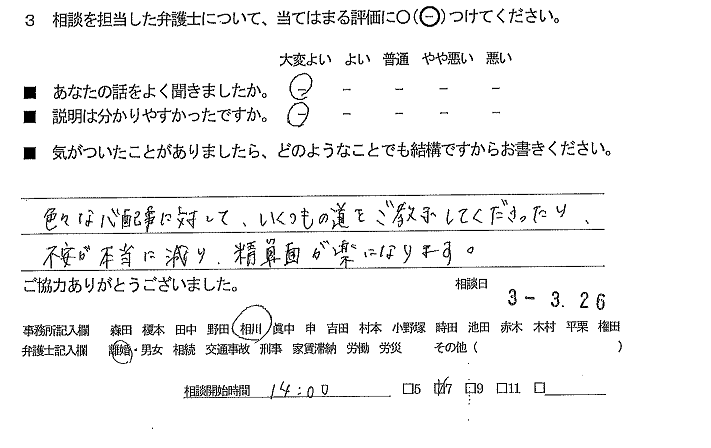 3 相談を担当した弁護士について、当てはまる評価に○(⊖)つけてください。
大変よい よい 普通 やや悪い 悪い
■ あなたの話をよく聞きましたか。 - - - - -
■ 説明は分かりやすかったですか。 - - - - -
■ 気がついたことがありましたら、どのようなことでも結構ですからお書きください。
色々な心配事に対して、いくつもの道をご教示してくださったり、
不安が本当に減り、精算面が楽になります。
ご協力ありがとうございました。
相談日 3-3.26
事務所記入欄 森田 榎本 田中 野田 相川 眞中 申 吉田 村本 小野塚 時田 池田 赤木 木村 平栗 権田
弁護士記入欄 離婚・男女 相続 交通事故 刑事 家賃滞納 労働 労災 その他( )
相談開始時間 14:00 □5 □7 □9 □11 □